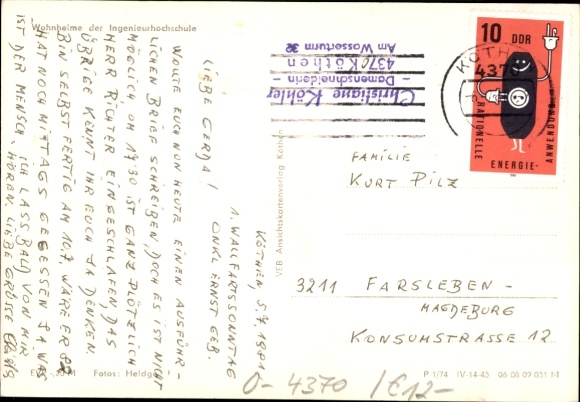 Wohnheime der Ingenieurhochschule
KÖTHEN, 5.7.1981
1. WALLFARTSSONNTAG
ONKL ERNST GEB.
LIEBE GERDA!
WOLLTE EUCH NUN HEUTE EINEN AUSFÜHR-
LICHEN BRIEF SCHREIBEN, DOCH ES IST NICHT
MÖGLICH UM 17.30 IST GANZ PLÖTZLICH
HERR RICHTER EINGESCHLAFEN, DAS
ÜBRIGE KÖNNT IHR EUCH JA DENKEN.
BIN SELBST FERTIG AM 10.7. WÄRE ER 82
HAT NOCH MITTAGS GEGESSEN JA WAS
IST DER MENSCH, ICH LASS BALD VON MIR
HÖREN. LIEBE GRÜSSE
Fotos: Heldge
VEB Ansichtskartenverlag Köthen
Christiane Köhler
– Damenschneiderin –
4370 Köthen
Am Wasserturm 32
KÖTHEN
4370
10 DDR
RATIONELLE
ENERGIE-
ANWENDUNG
FAMILIE
KURT PILZ
3211 FARSLEBEN-
MAGDEBURG
KONSUMSTRASSE 12
P 1/74 IV-14-45 06 08 09 031 M
O- 4370 /€12-